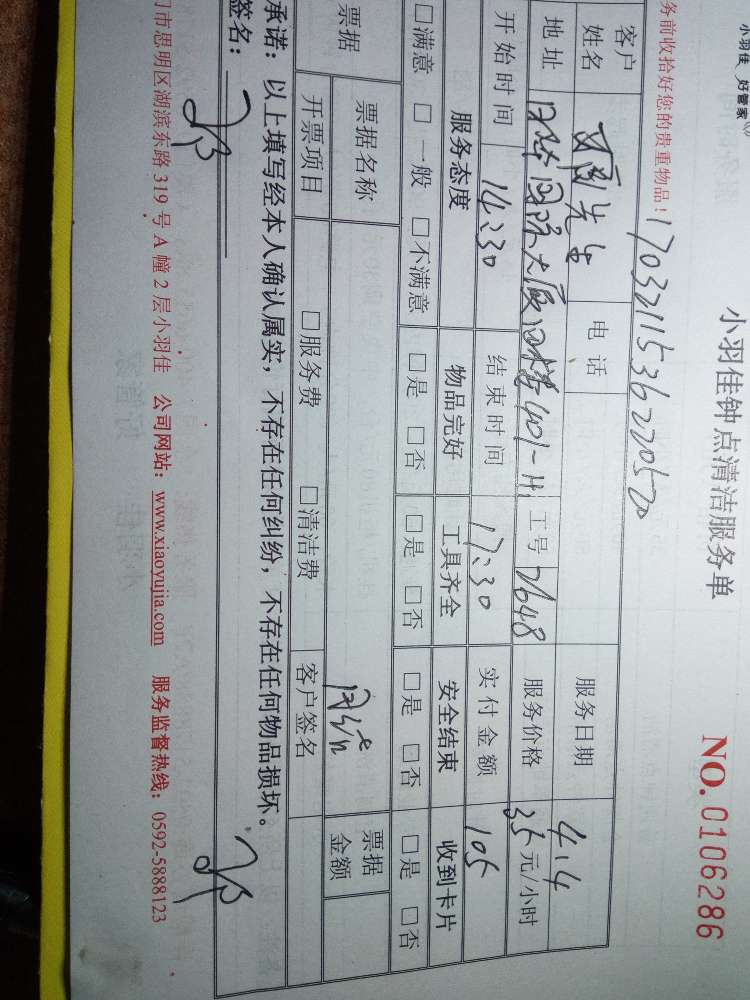 小羽佳 好管家
小羽佳钟点清洁服务单
NO. 0106286
务前收拾好您的贵重物品！
1703211536220520
客户姓名 先生 电话 服务日期 4.14
地址 国际大厦 401-H 工号 7648 服务价格 35元/小时
开始时间 14:30 结束时间 17:30 实付金额 105
服务态度 物品完好 工具齐全 安全结束 收到卡片
□满意 □一般 □不满意 □是 □否 □是 □否 □是 □否 □是 □否
票据 票据名称 票据金额
开票项目 □服务费 □清洁费 客户签名
承诺：以上填写经本人确认属实，不存在任何纠纷，不存在任何物品损坏。
签名：
门市思明区湖滨东路319号A幢2层小羽佳 公司网站：www.xiaoyujia.com 服务监督热线：0592-5888123